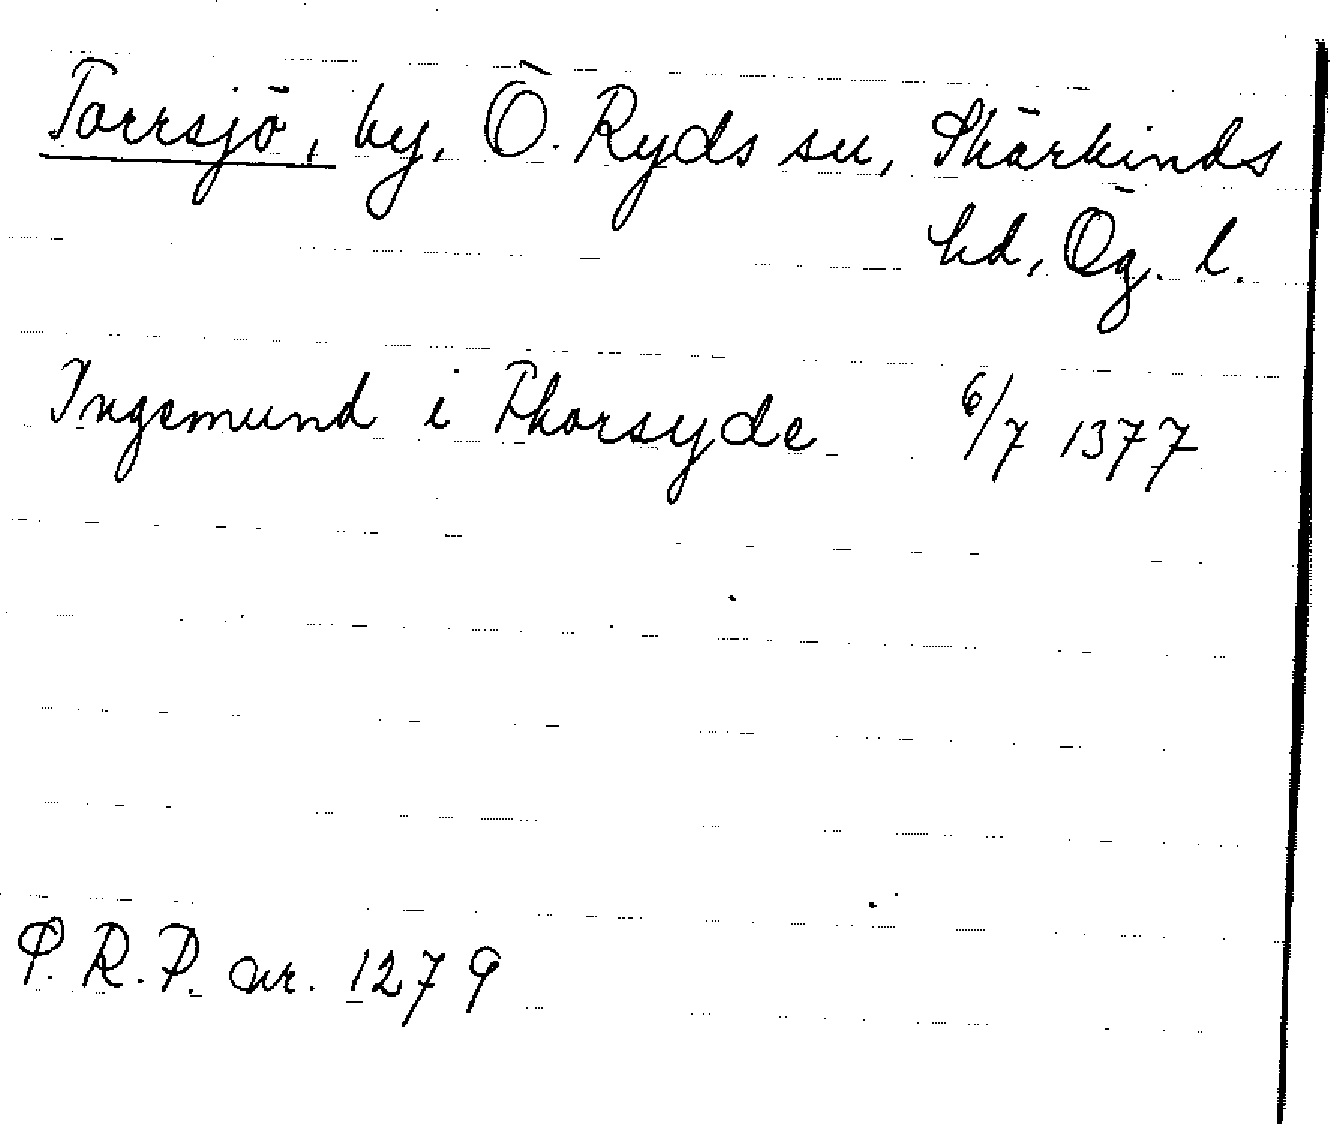 Torrsjö, by, Ö. Ryds sn, Skärkinds
hd, Ög. l.
Ingemund i Thorsyde 6/7 1377
P. R. P. nr. 1279